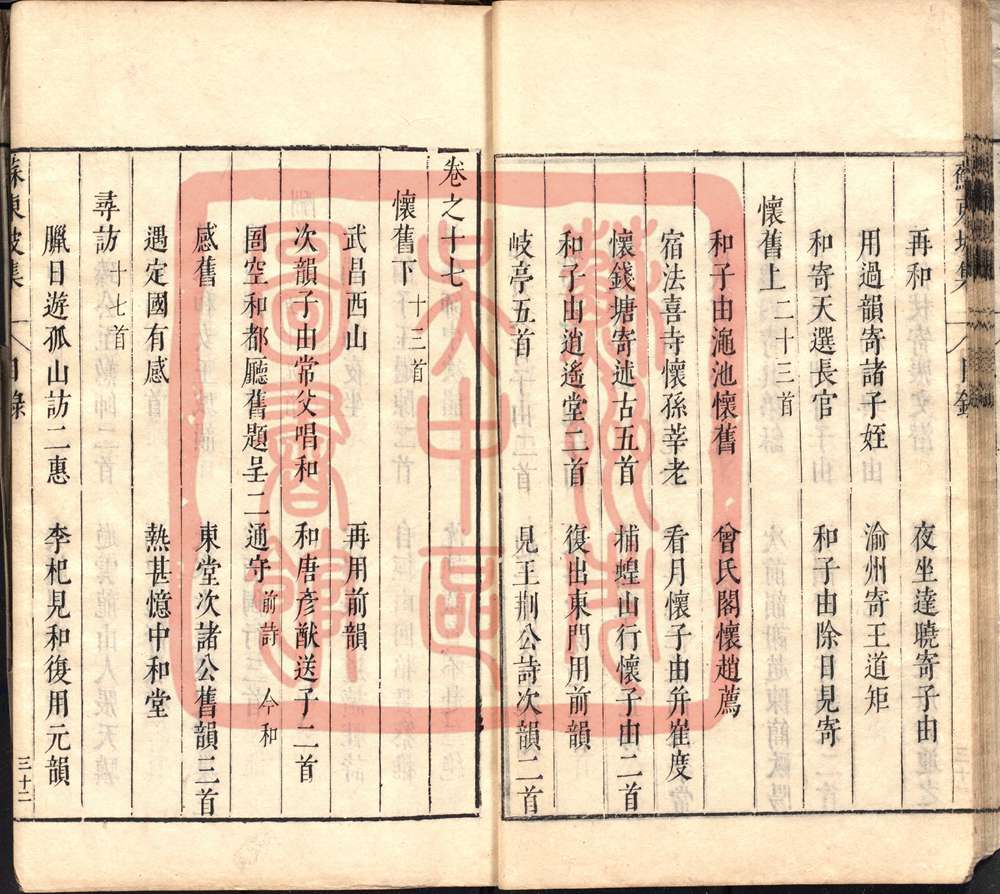 再和 夜坐達曉寄子由
用過韻寄諸子姪 渝州寄王道矩
和寄天選長官 和子由除日見寄
懷舊上 二十三首
和子由澠池懷舊 曾氏閣懷趙薦
宿法喜寺懷孫莘老 看月懷子由并崔度
懷錢塘寄述古五首 捕蝗山行懷子由二首
和子由逍遙堂二首 復出東門用前韻
岐亭五首 見王荆公詩次韻二首
卷之十七
懷舊下 十三首
武昌西山 再用前韻
次韻子由常父唱和 和唐彥猷送子二首
圄空和都廳舊題呈二通守 前詩 今和
感舊 東堂次諸公舊韻三首
遇定國有感 熱甚憶中和堂
尋訪 十七首
臘日遊孤山訪二惠 李杞見和復用元韻
蘇東坡集 目錄 三十二